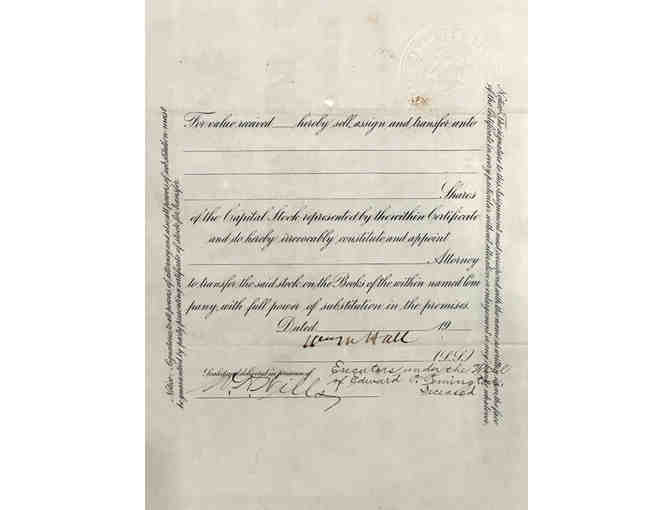 For value received ___ hereby sell, assign and transfer unto
Shares
of the Capital Stock represented by the within Certificate
and do hereby irrevocably constitute and appoint
Attorney
to transfer the said stock on the Books of the within named Com
pany, with full power of substitution in the premises.
Dated 19
Wm M Hall
Sealed and delivered in presence of
Executors under the Will
of Edward
Deceased
Notice: The signature to this Assignment must correspond with the name as written upon the face
of the Certificate in every particular without alteration or enlargement or any change whatever.
Notice: Signatures to all powers of attorney and also all powers of substitution must
be guaranteed by party presenting certificate of stock for transfer.